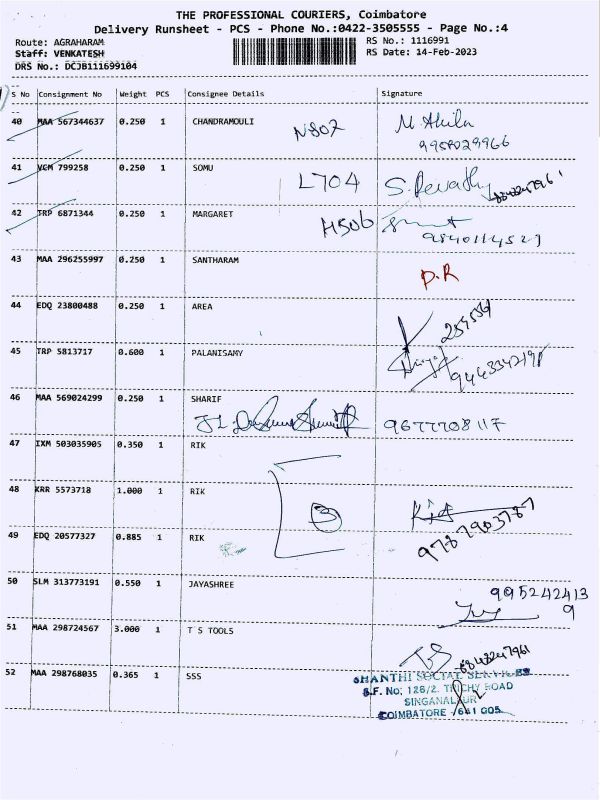 THE PROFESSIONAL COURIERS, Coimbatore
Delivery Runsheet - PCS - Phone No.:0422-3505555 - Page No.:4
Route: AGRAHARAM RS No.: 1116991
Staff: VENKATESH RS Date: 14-Feb-2023
DRS No.: DCJB111699104
S No Consignment No Weight PCS Consignee Details Signature
40 MAA 567344637 0.250 1 CHANDRAMOULI N807 M. Akila
9959029966
41 VCM 799258 0.250 1 SOMU L704 S. Revathy
42 TRP 6871344 0.250 1 MARGARET H506
9840114527
43 MAA 296255997 0.250 1 SANTHARAM D.R
44 EDQ 23800488 0.250 1 AREA
45 TRP 5813717 0.600 1 PALANISAMY
46 MAA 569024299 0.250 1 SHARIF
9677708117
47 IXM 503035905 0.350 1 RIK
48 KRR 5573718 1.000 1 RIK 3
9787903787
49 EDQ 20577327 0.885 1 RIK
50 SLM 313773191 0.550 1 JAYASHREE 995242413
9
51 MAA 298724567 3.000 1 T S TOOLS
TS
52 MAA 298768035 0.365 1 SSS
SHANTHI SOCIAL SERVICES
S.F. No: 126/2. TRICHY ROAD
SINGANALLUR
COIMBATORE - 641 005.